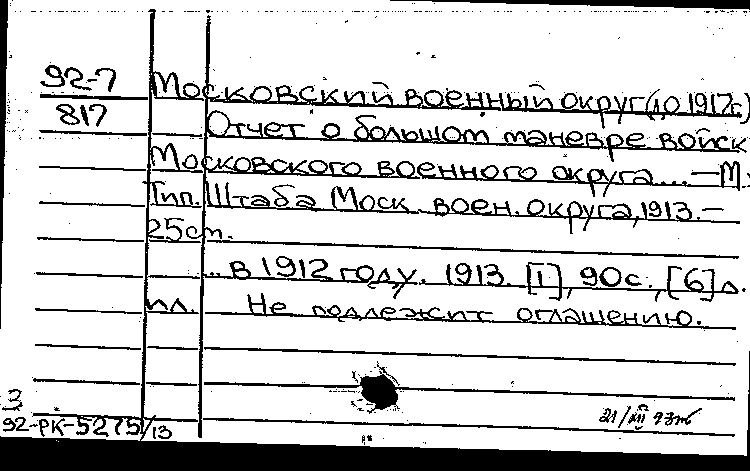 92-7 Московский военный округ (до 1917г.)
817 Отчет о большом маневре войск
Московского военного округа... — М.:
Тип. Штаба Моск. воен. округа, 1913. —
25 cm.
... в 1912 году. 1913. [1], 90 с., [6] л.
ил. Не подлежит оглашению.
3
92-РК-5275/13
21/XII